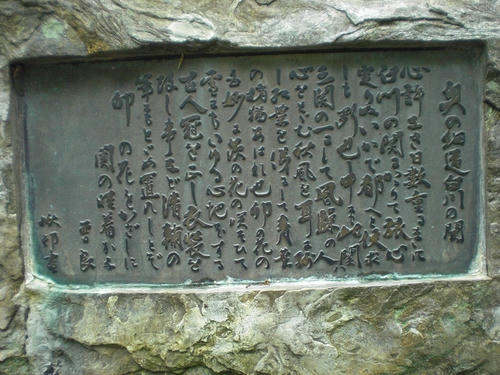 奥の細道白川の関
心許なき日數重るまゝに
白川の関にかゝりて旅心
定りぬいかで都へと便求
しも断也中にも此関は
三関の一にして風騒の人
心をとゞむ秋風を耳に残
し紅葉を俤にして青葉
の梢猶あはれ也卯の花の
白妙に茨の花の咲そひて
雪にもこゆる心地ぞする
古人冠を正し衣装を
改し事など清輔の
筆にもとゞめ置れしとぞ
卯の花をかざしに
関の晴着かな
曽良